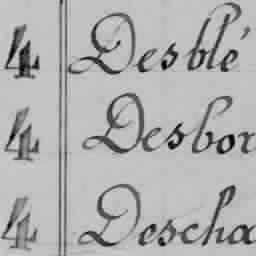 4 Desblé
4 Desbor
4 Descha